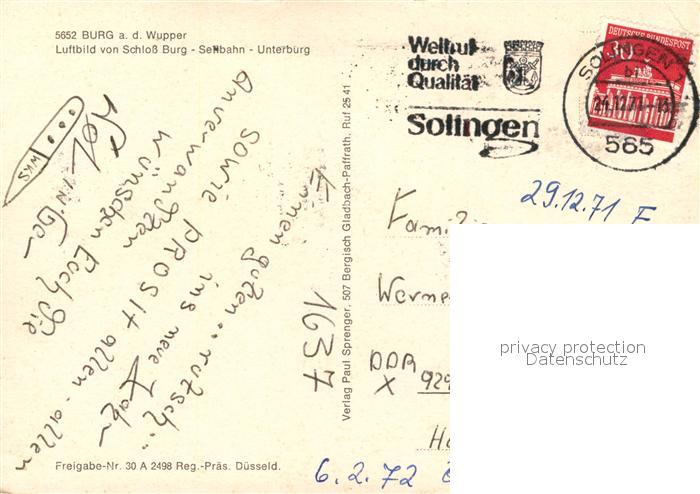 5652 BURG a. d. Wupper
Luftbild von Schloß Burg - Seilbahn - Unterburg
Weltruf
durch
Qualität
Solingen
DEUTSCHE BUNDESPOST
30
SOLINGEN 1
24.12.71-13
565
WKS
wünschen Euch die
Anverwandten
sowie PROSIT allen - allen
ins neue Jahr
Einen guten... rutsch...
1637
Verlag Paul Sprenger, 507 Bergisch Gladbach-Paffrath, Ruf 2541
29.12.71 E
Fami
Werne
DDR
X 929
Ha
6.2.72
privacy protection
Datenschutz
Freigabe-Nr. 30 A 2498 Reg.-Präs. Düsseld.